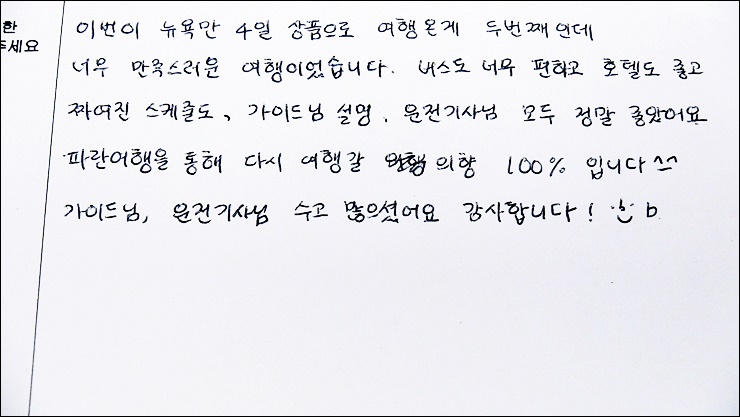 한
주세요
이번이 뉴욕만 4일 상품으로 여행온게 두번째인데
너무 만족스러운 여행이었습니다. 버스도 너무 편하고 호텔도 좋고
짜여진 스케쥴도, 가이드님 설명, 운전기사님 모두 정말 좋았어요
파란여행을 통해 다시 여행갈 의향 100% 입니다 ^^
가이드님, 운전기사님 수고 많으셨어요 감사합니다! :) b